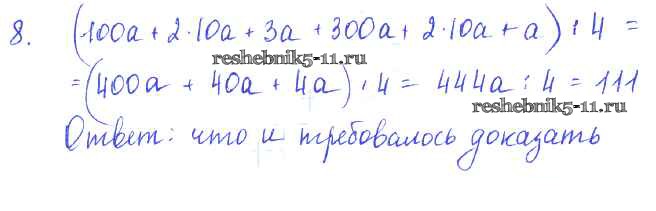 8. (100a + 2·10a + 3a + 300a + 2·10a + a) : 4 =
reshebnik5-11.ru
= (400a + 40a + 4a) : 4 = 444a : 4 = 111
reshebnik5-11.ru
Ответ: что и требовалось доказать